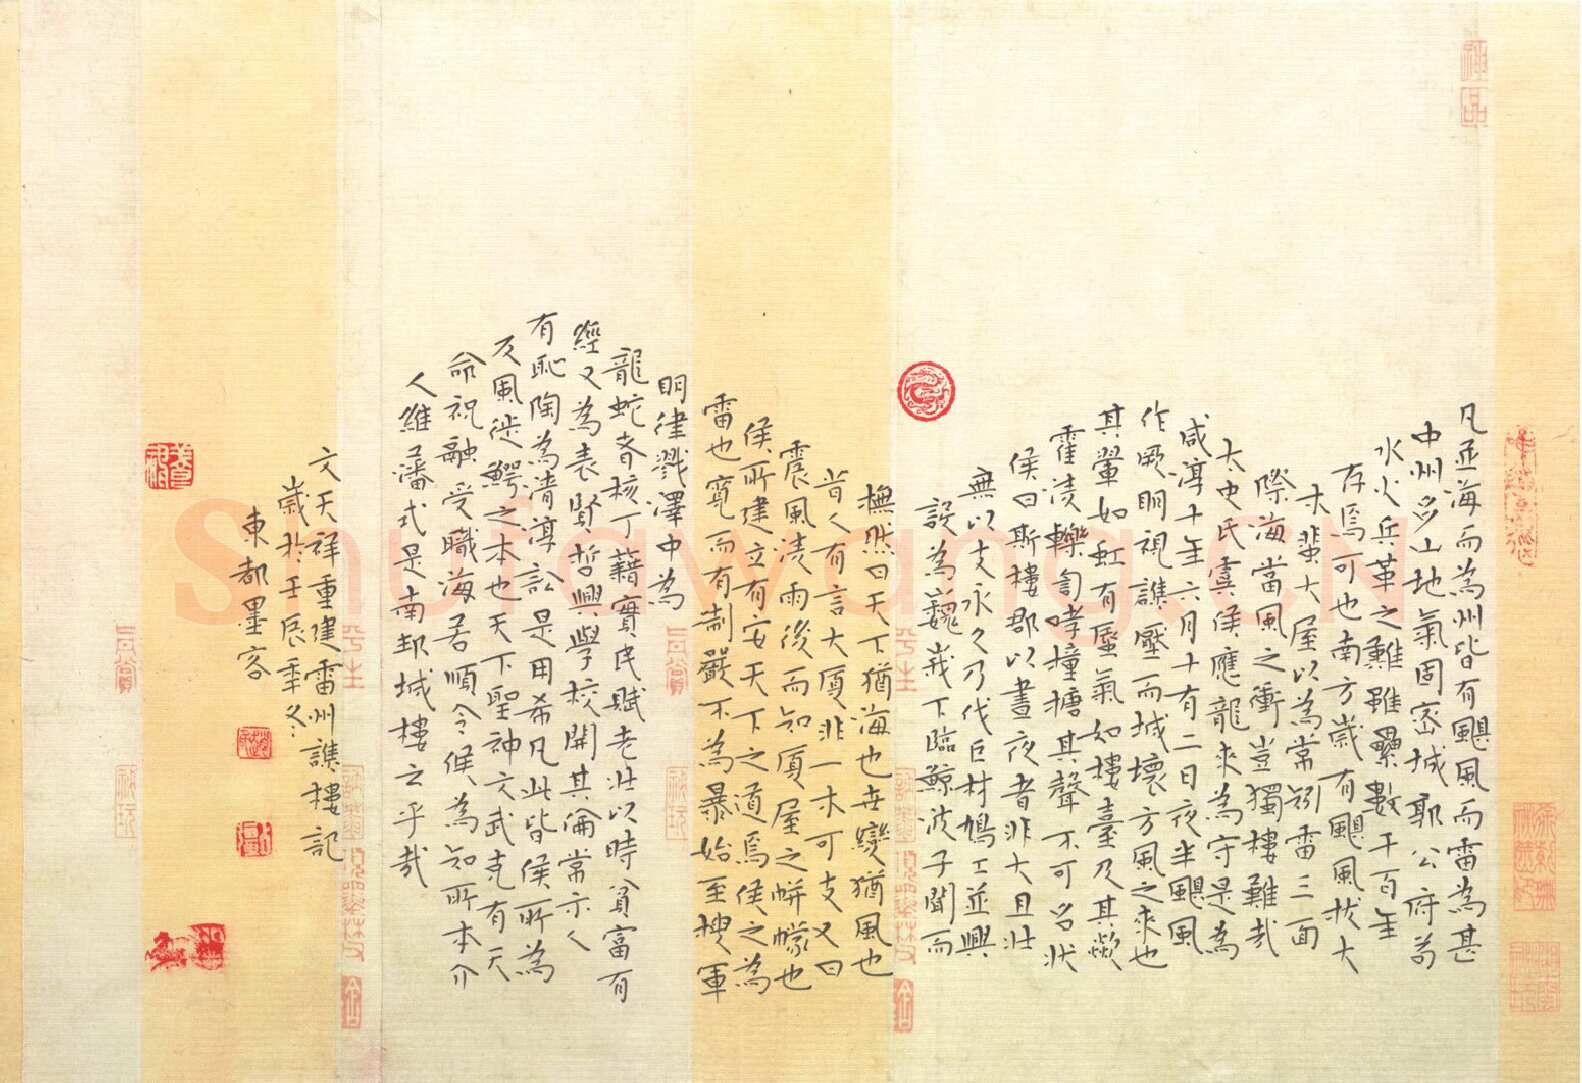 凡並海而為州皆有颶風而雷為甚
中州多山地氣固密城郭公府苟
水火兵革之難雖纍數千百年
存焉可也南方歲有颶風拔大
木蜚大屋以為常矧雷三面
際海當風之衝豈獨樓難哉
太史氏虞侯應龍來為守是為
咸淳十年六月十有二日夜半颶風
作厥明視譙壓而城壞方風之來也
其翬如虹有壓氣如樓臺及其歘
霍湊轢訇哮撞搪其聲不可名狀
侯曰斯樓郡以晝夜者非大且壯
無以支永久乃伐巨材鳩工並興
設為巍峩下臨鯨波予聞而
憮然曰天下猶海也世變猶風也
昔人有言大廈非一木可支又曰
震風凌雨後而知廈屋之帡幪也
侯所建立有安天下之道焉侯之為
雷也寬而有制嚴不為暴始至搜軍
明律戮澤中為
龍蛇者核丁籍實民賦老壯以時貧富有
經又為表賢哲興學校開其倫常示人
有恥陶為清淳訟是用希凡此皆侯所為
及風徙鰐之本也天下聖神文武克有天
命祝融受職海若順令侯為知所本介
人維藩式是南邦城樓云乎哉
文天祥重建雷州譙樓記
歲於壬辰年冬
東都墨客
Shufawang.CN